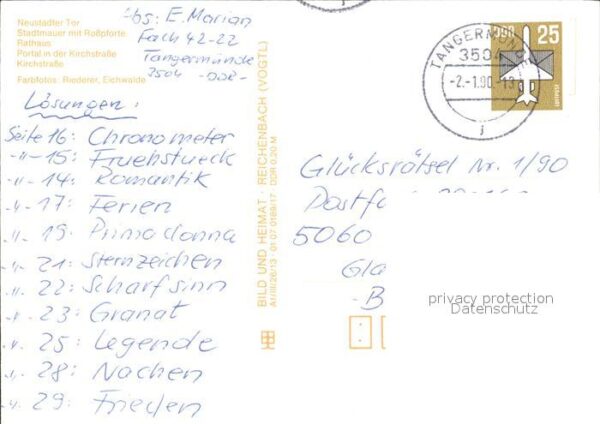 Neustädter Tor
Stadtmauer mit Roßpforte
Rathaus
Portal in der Kirchstraße
Kirchstraße
Farbfotos: Riederer, Eichwalde
Abs: E. Marian
Fach 42-22
Tangermünde
3504 -DDR-
Lösungen:
Seite 16: Chronometer
-"- 15: Fruehstueck
-"- 14: Romantik
-"- 17: Ferien
-"- 19: Primadonna
-"- 21: Sternzeichen
-"- 22: Scharfsinn
-"- 23: Granat
-"- 25: Legende
-"- 28: Nachen
-"- 29: Frieden
BILD UND HEIMAT · REICHENBACH (VOGTL)
A1/III/26/13 · 01 07 0189/17 DDR 0,20 M
TANGERMÜNDE
3504
-2.-1.90.-13
j
DDR 25
LUFTPOST
Glücksrätsel Nr. 1/90
Postfa
5060
Gla
-B
privacy protection
Datenschutz